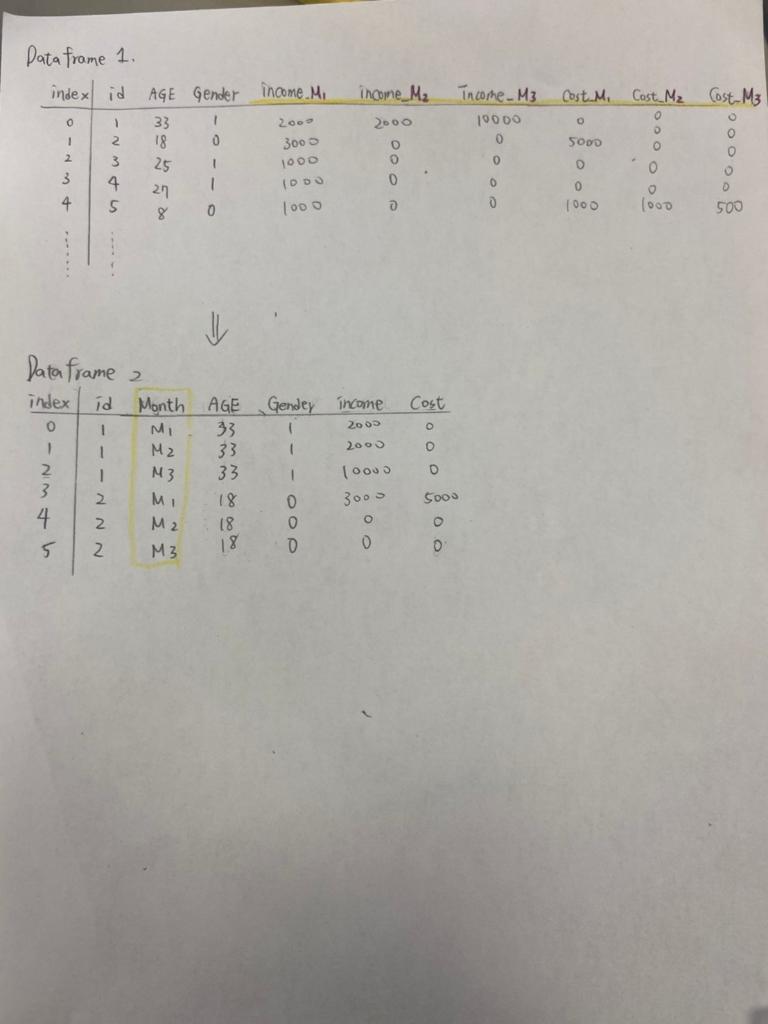 Dataframe 1.
index id AGE Gender income_M1 income_M2 Income_M3 Cost_M1 Cost_M2 Cost_M3
0 1 33 1 2000 2000 10000 0 0 0
1 2 18 0 3000 0 0 5000 0 0
2 3 25 1 1000 0 0 0 0 0
3 4 27 1 1000 0 0 0 0 0
4 5 8 0 1000 0 0 1000 1000 500
⇓
Dataframe 2
index id Month AGE Gender income Cost
0 1 M1 33 1 2000 0
1 1 M2 33 1 2000 0
2 1 M3 33 1 10000 0
3 2 M1 18 0 3000 5000
4 2 M2 18 0 0 0
5 2 M3 18 0 0 0